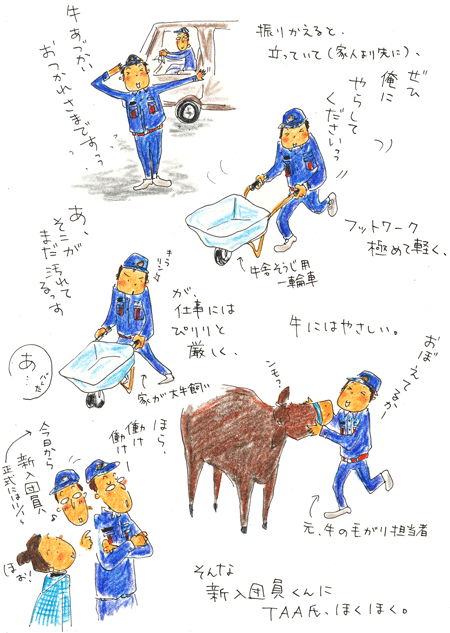 牛あづかい
おつかれさまですっっ
振りかえると、
立っていて(家人より先に)、
ぜひ
俺に
やらして
くださいっっ
フットワーク
極めて軽く、
牛舎そうじ用
一輪車
あ、
そこが
まだ汚れて
るっす
キラ
リン
が、
仕事には
ぴりりと
厳しく、
家が大牛飼い
あ…
牛にはやさしい。
おぼえてるかー
ンモ?
元、牛の毛がり担当者
ほら、
働け
働けー
今日から
新入団員
正式には
ほお!
そんな
新入団員くんに
TAA氏、ほくほく。